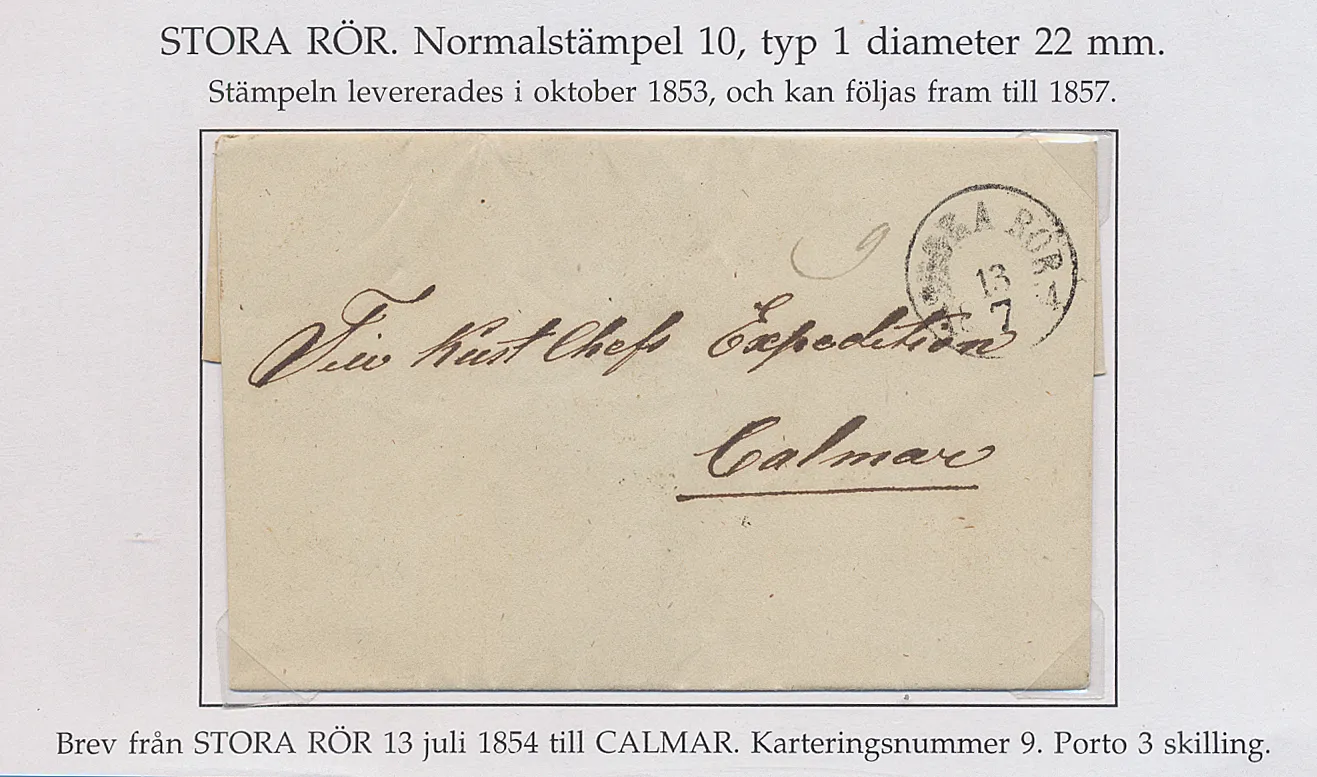 STORA RÖR. Normalstämpel 10, typ 1 diameter 22 mm.
Stämpeln levererades i oktober 1853, och kan följas fram till 1857.
9
STORA RÖR
13
7
Kust Chefs Expedition
Calmar
Brev från STORA RÖR 13 juli 1854 till CALMAR. Karteringsnummer 9. Porto 3 skilling.